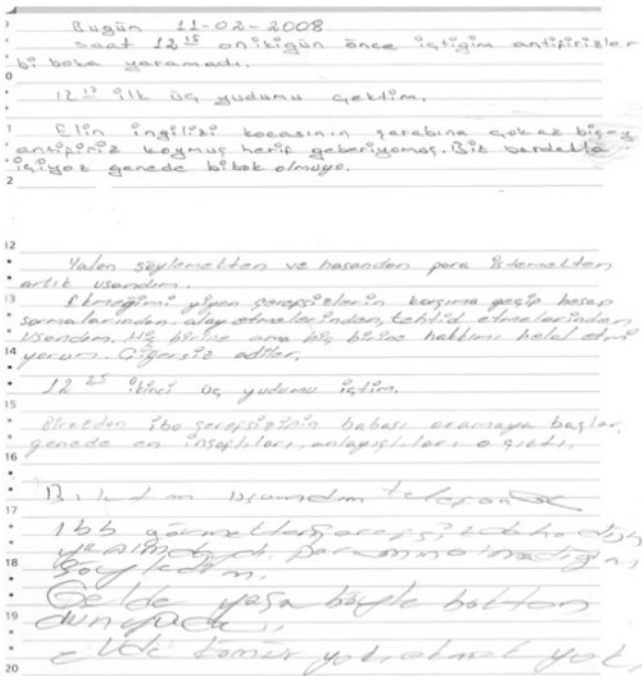 Bugün 11-02-2008
saat 12 15 onikigün önce içtiğim antifirizler
bi boka yaramadı.
0
12 17 ilk üç yudumu çektim.
1
Elin ingilizi kocasının şarabına çok az bişey
antifiriz koymuş herif geberiyomuş. Biz bardakla
içiyoz genede bibok olmuyo.
2
12
Yalan söylemekten ve hasandan para istemekten
artık usandım.
13
Ekmeğimi yiyen şerefsizlerin karşıma geçip hesap
sormalarından, alay etmelerinden, tehtid etmelerinden
usandım. Hiç birine ama hiç birine hakkımı helal etmi
14
yorum. Ciğersiz adiler.
12 25 ikinci üç yudumu içtim.
15
Birazdan ibo şerefsizinin babası aramaya başlar,
genede en insaflıları, anlayışlıları o çıktı.
16
usandım telefon
17
ibb
18
söyledim.
Gelde yaşa böyle battan
19
dünyada..
Evde kömür yok, ekmek yok,
20